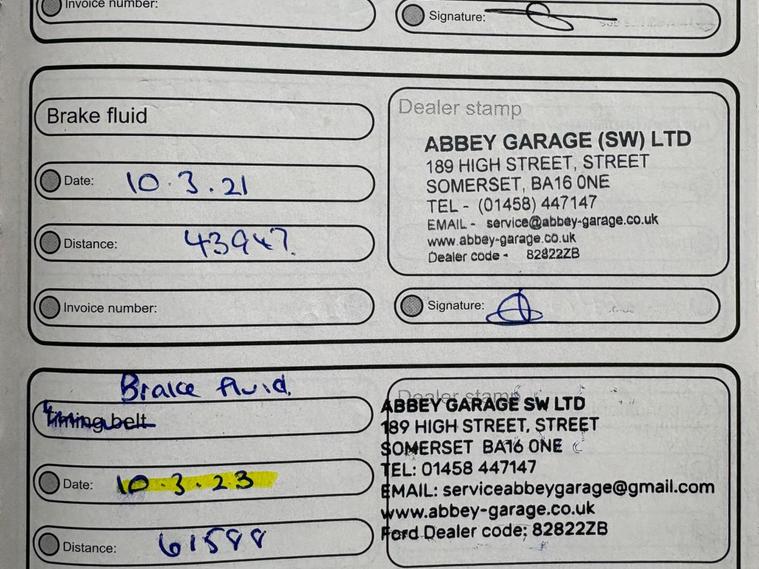 Invoice number:
Signature:
Brake fluid
Dealer stamp
ABBEY GARAGE (SW) LTD
189 HIGH STREET, STREET
SOMERSET, BA16 0NE
TEL - (01458) 447147
EMAIL - service@abbey-garage.co.uk
www.abbey-garage.co.uk
Dealer code - 82822ZB
Date: 10.3.21
Distance: 43947.
Invoice number:
Signature:
Brake fluid.
Timing belt
Dealer stamp
ABBEY GARAGE SW LTD
189 HIGH STREET, STREET
SOMERSET BA16 0NE
TEL: 01458 447147
EMAIL: serviceabbeygarage@gmail.com
www.abbey-garage.co.uk
Ford Dealer code: 82822ZB
Date: 10.3.23
Distance: 61588